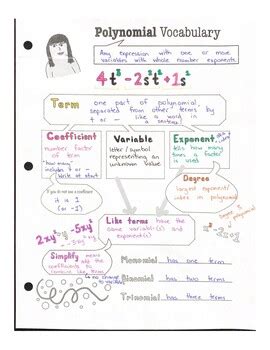 Polynomial Vocabulary
Any expression with one or more
variables with whole number exponents.
4t³-2s²t+1s²
Term
one part of polynomial,
separated from other terms by
+ or - like a word in
a sentence!
Coefficient
number factor
of term
"how many"
includes + or -
Write at start
Variable
letter / symbol
representing an
unknown value
Exponent
tells how many
times a factor
is used
If you do not see a coefficient
it is 1
(or -1)
Degree
largest exponent/
index in polynomial
Degree
polynomial
Like terms have the
same variable(s) and
exponent(s)
Simplify means add the
coefficients to
combine like terms
no change to exponents!
Monomial has one term
Binomial has two terms
Trinomial has three terms